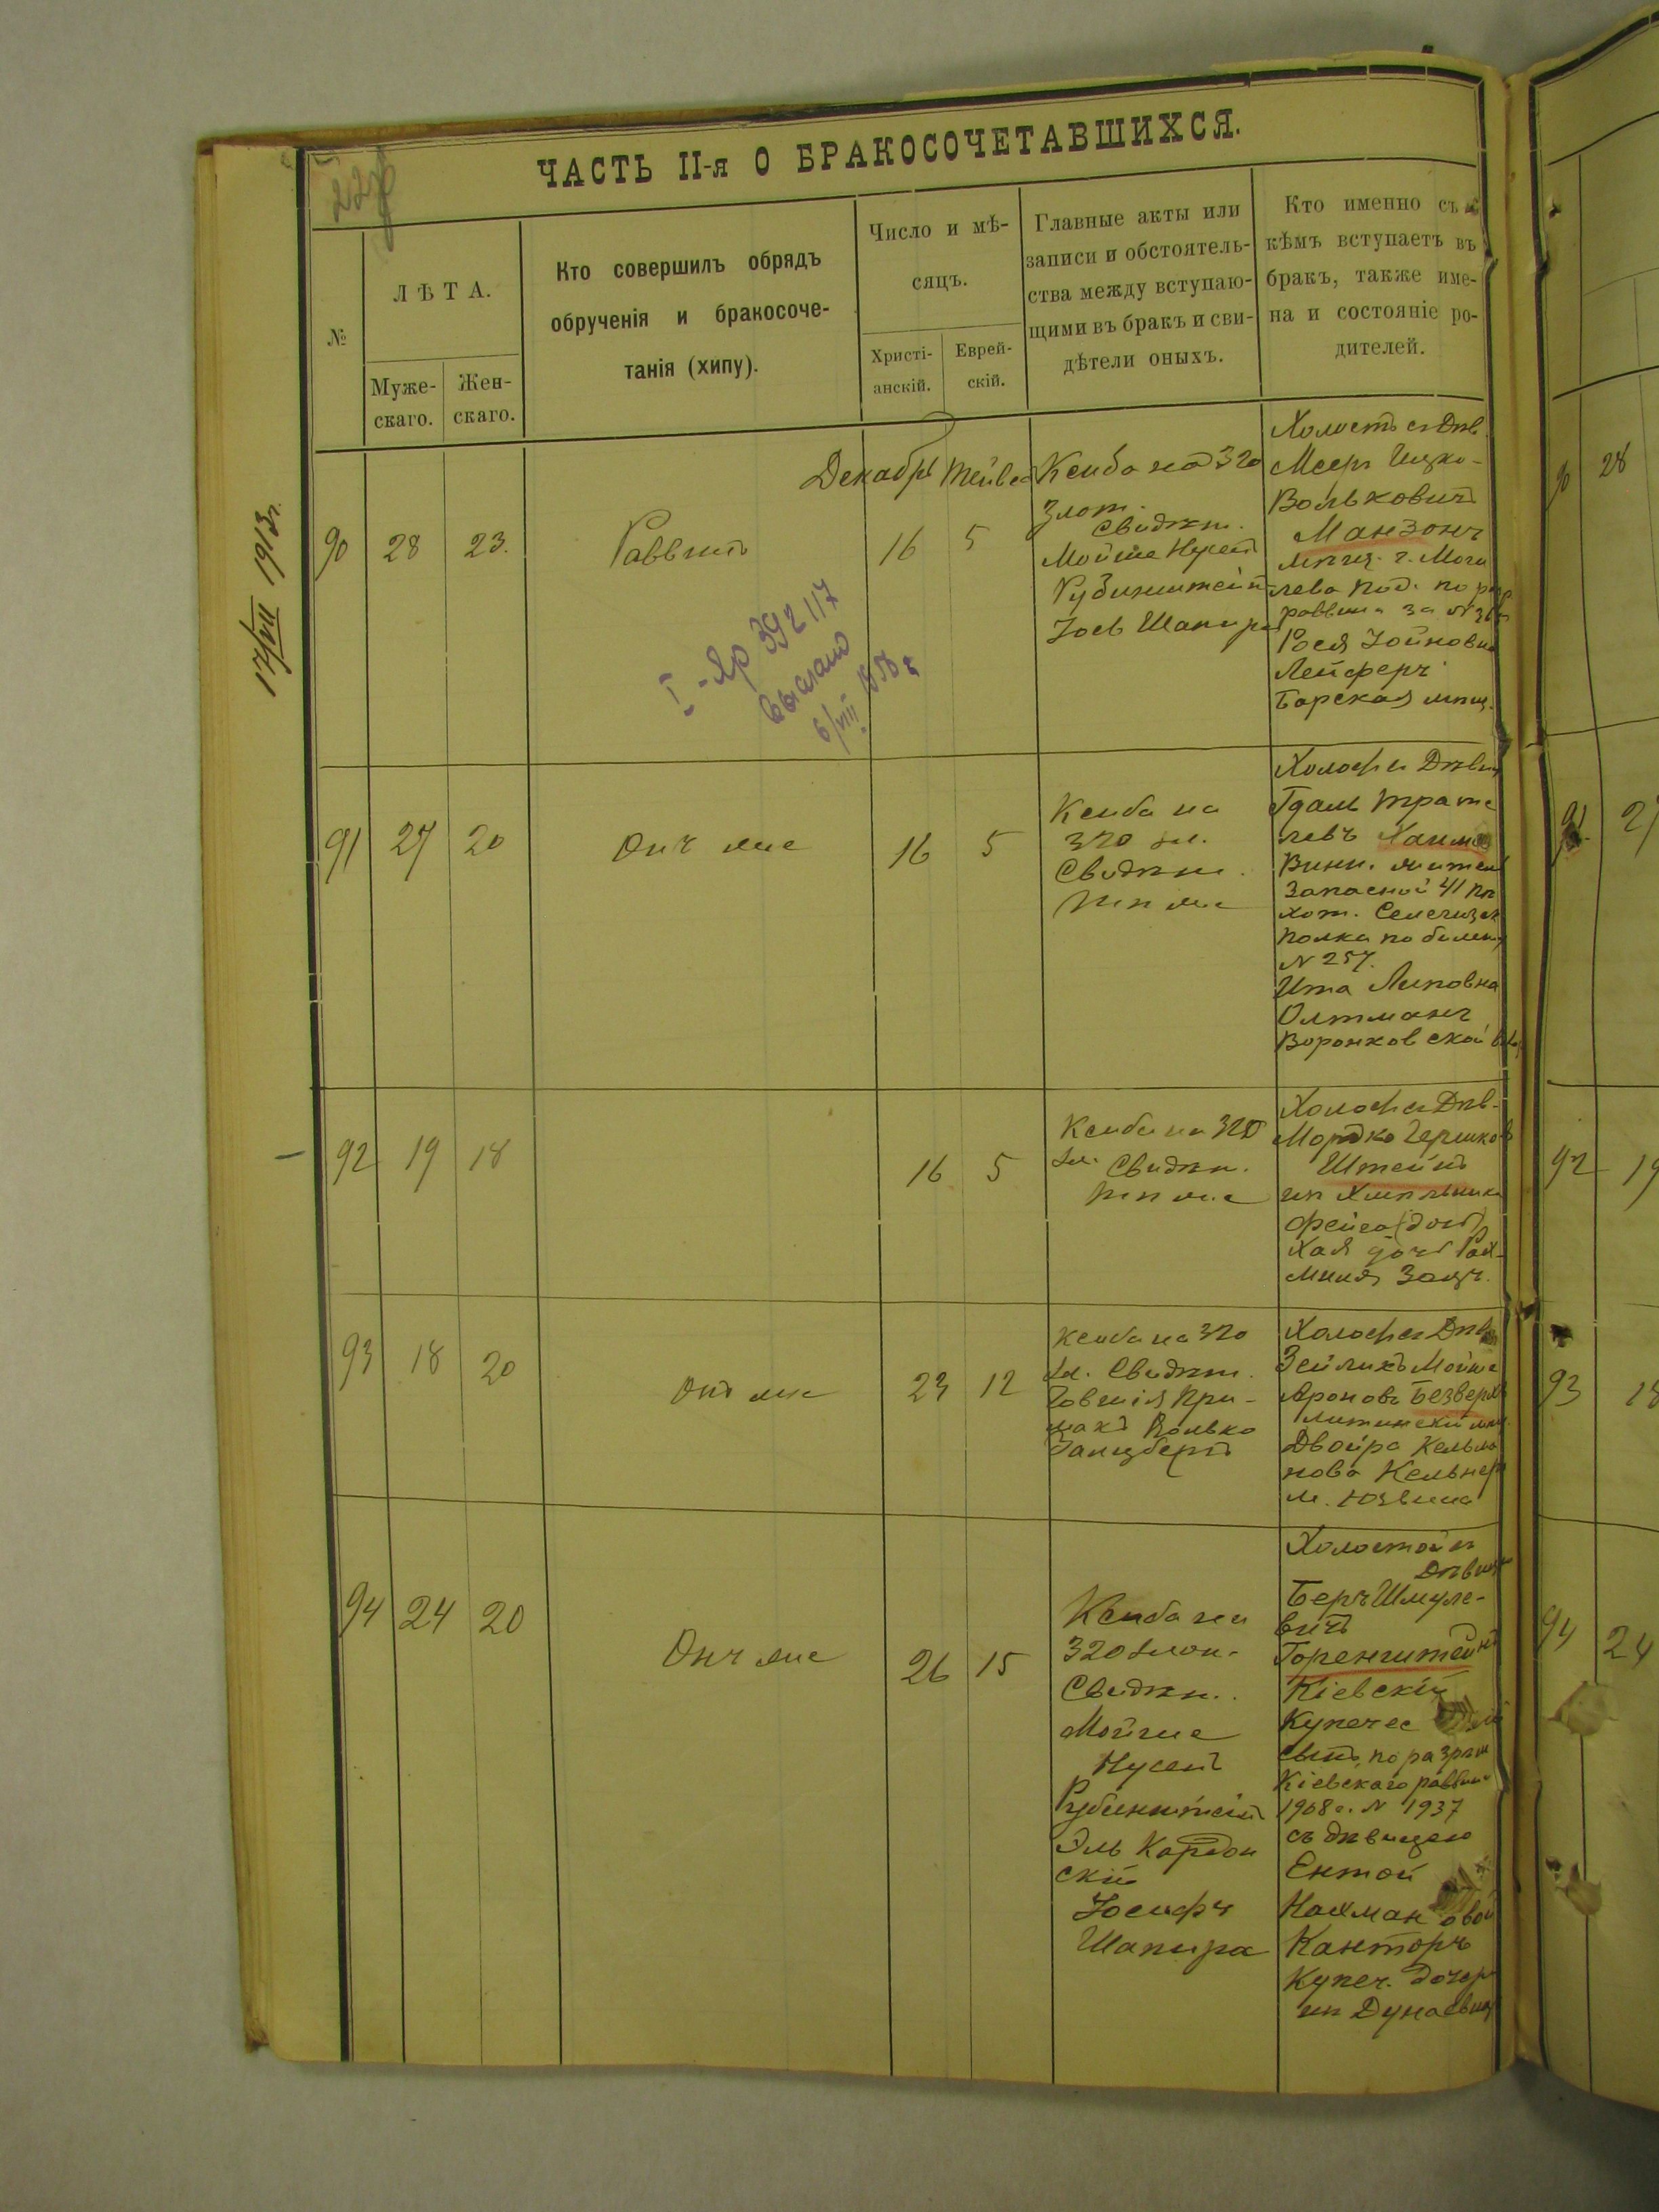 ЧАСТЬ II-я О БРАКОСОЧЕТАВШИХСЯ.
№
ЛѢТА.
Муже-
скаго.
Жен-
скаго.
Кто совершилъ обрядъ
обрученія и бракосоче-
танія (хипу).
Число и мѣ-
сяцъ.
Христі-
анскій.
Еврей-
скій.
Главные акты или
записи и обстоятель-
ства между вступаю-
щими въ бракъ и сви-
дѣтели оныхъ.
Кто именно съ
кѣмъ вступаетъ въ
бракъ, также име-
на и состояніе ро-
дителей.
17/VII 1913 г.
90
28
23.
Раввинъ
Декабрь
16
5
Ксиба на 320
Злот.
Свидѣт.
Мойше Нусен
Рубинштейн
Іось Шапира
Холостъ съ Дѣв
Меер Ицко-
Вольковичъ
Манзонъ
мѣщ. г. Моги
лева Под. по
раввина за №
Рося Іойновна
Лейферъ
Барская мѣщ.
I - Яр 392117
выслано
6/VIII
91
27
20
Онъ же
16
5
Ксиба на
320 зл.
Свидѣт.
тѣ же
Холост съ Дѣвиц
Гдаль
левъ Хаим
Винн. жител
Запасной 41 пѣ
хот. Селегинск
полка по билету
№ 257.
Ита Липовна
Олтманъ
Воронковской
92
19
18
16
5
Ксиба на 320
зл. Свидѣт.
тѣ же
Холост съ Дѣв.
Мордко Гершков
Штейнъ
изъ Хмѣльника
Фейга
Хая дочь Рах-
миля Заяц.
93
18
20
Онъ же
23
12
Ксиба на 320
зл. Свидѣт.
Говшія При-
мак Волько
Ганцбергъ
Холост съ Дѣв
Зейликъ Мойше
Ароновъ Безверх
Литинскій мѣщ.
Двойра Кельма
нова Кельнер
м. Юзвина
94
24
20
Онъ же
26
15
Ксиба на
320 злот.
Свидѣт.
Мойше
Нусен
Рубинштейн
Эль Кордон
скій
Іосифъ
Шапира
Холостой съ
Дѣвиц
Беръ Шмуле-
вичъ
Горенштейнъ
Кіевскій
Купечес
сынъ, по разрѣш
Кіевскаго раввина
1908 г. № 1937
съ дѣвицею
Ентой
Нахмановой
Канторъ
Купеч. дочерь
изъ Дунаевиц
90
28
92
19
93
18
94
24